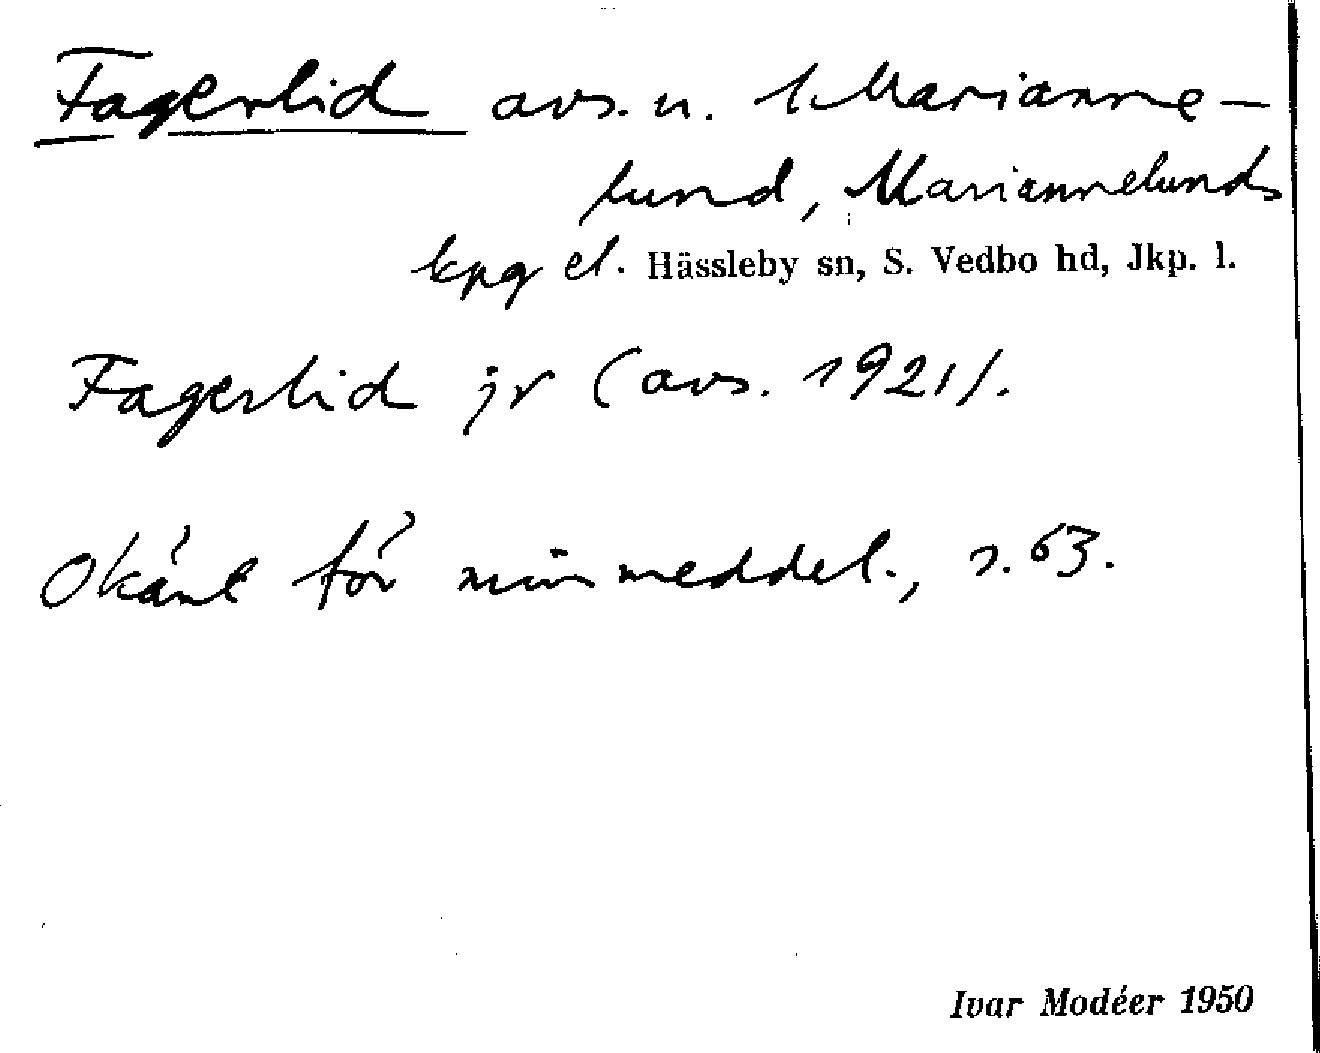 Fagerlid avs. u. 1 Marianne-
lund, Mariannelunds
kpg el. Hässleby sn, S. Vedbo hd, Jkp. l.
Fagerlid jr (avs. 1921).
Okänt för min meddel., s. 63.
Ivar Modéer 1950